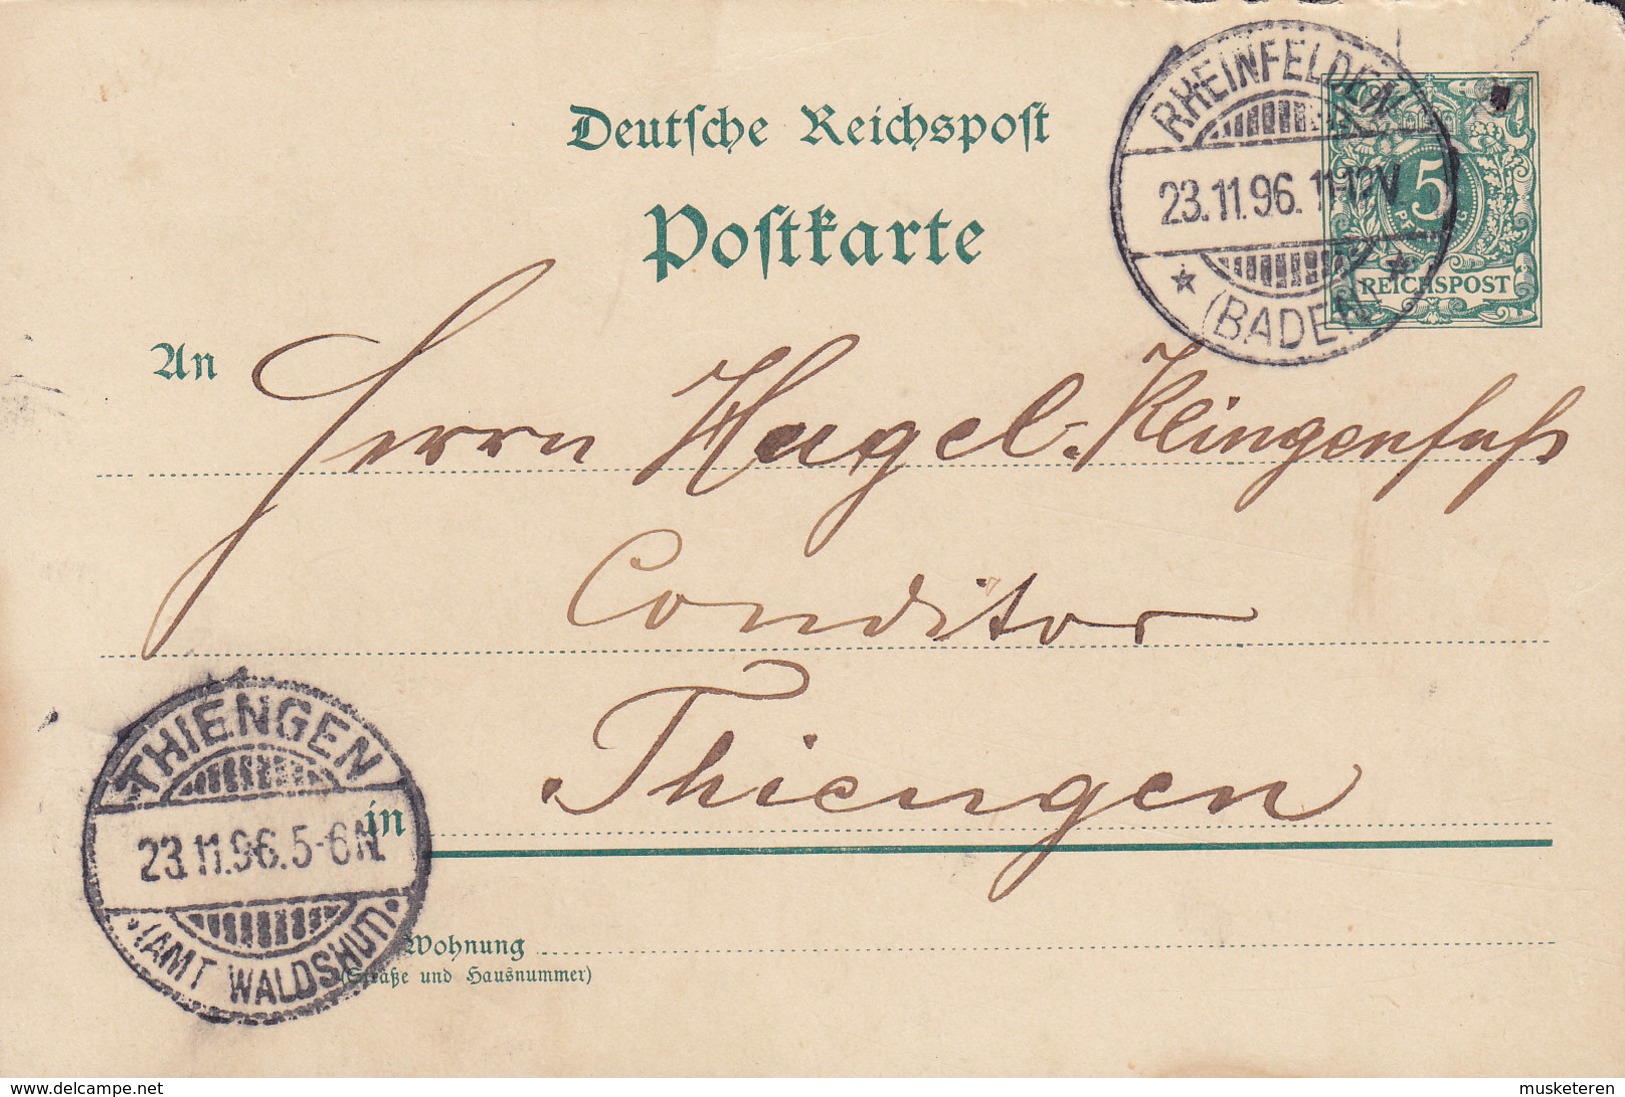 Deutsche Reichspost
Postkarte
RHEINFELDEN
23.11.96. 11-12V
(BADEN)
5
REICHSPOST
An
Herrn Hugel-Klingenfuß
Conditor
Thiengen
THIENGEN
23.11.96. 5-6N.
(AMT WALDSHUT)
in
Wohnung
(Straße und Hausnummer)
© www.delcampe.net
musketeren